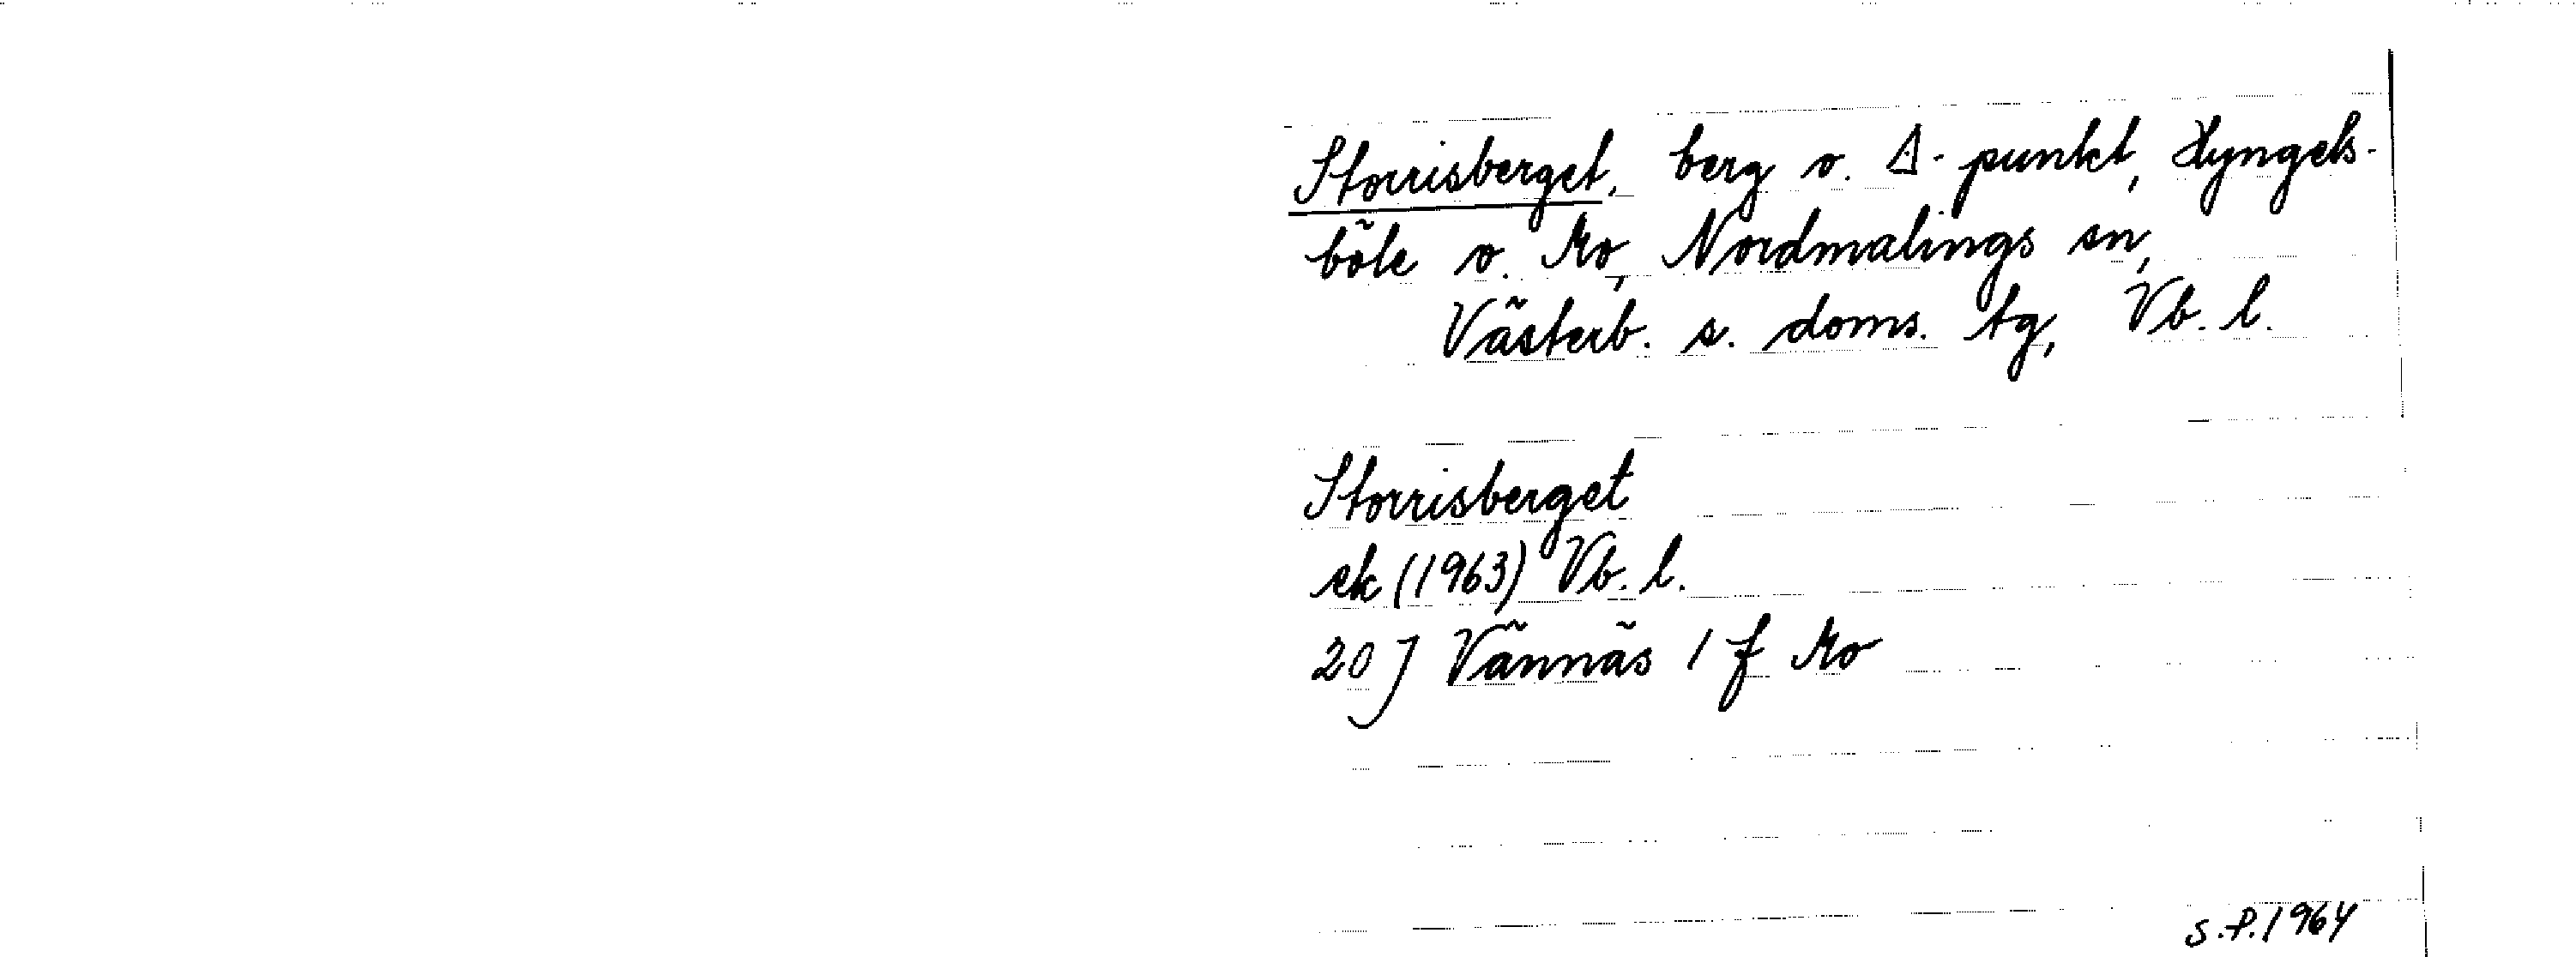 Storrisberget, berg o. ∆-punkt, Hyngels-
böle o. Mo, Nordmalings sn,
Västerb. s. doms. tg, Vb. l.
Storrisberget
ek (1963) Vb. l.
20 J Vännäs 1 f Mo
S.P. 1964